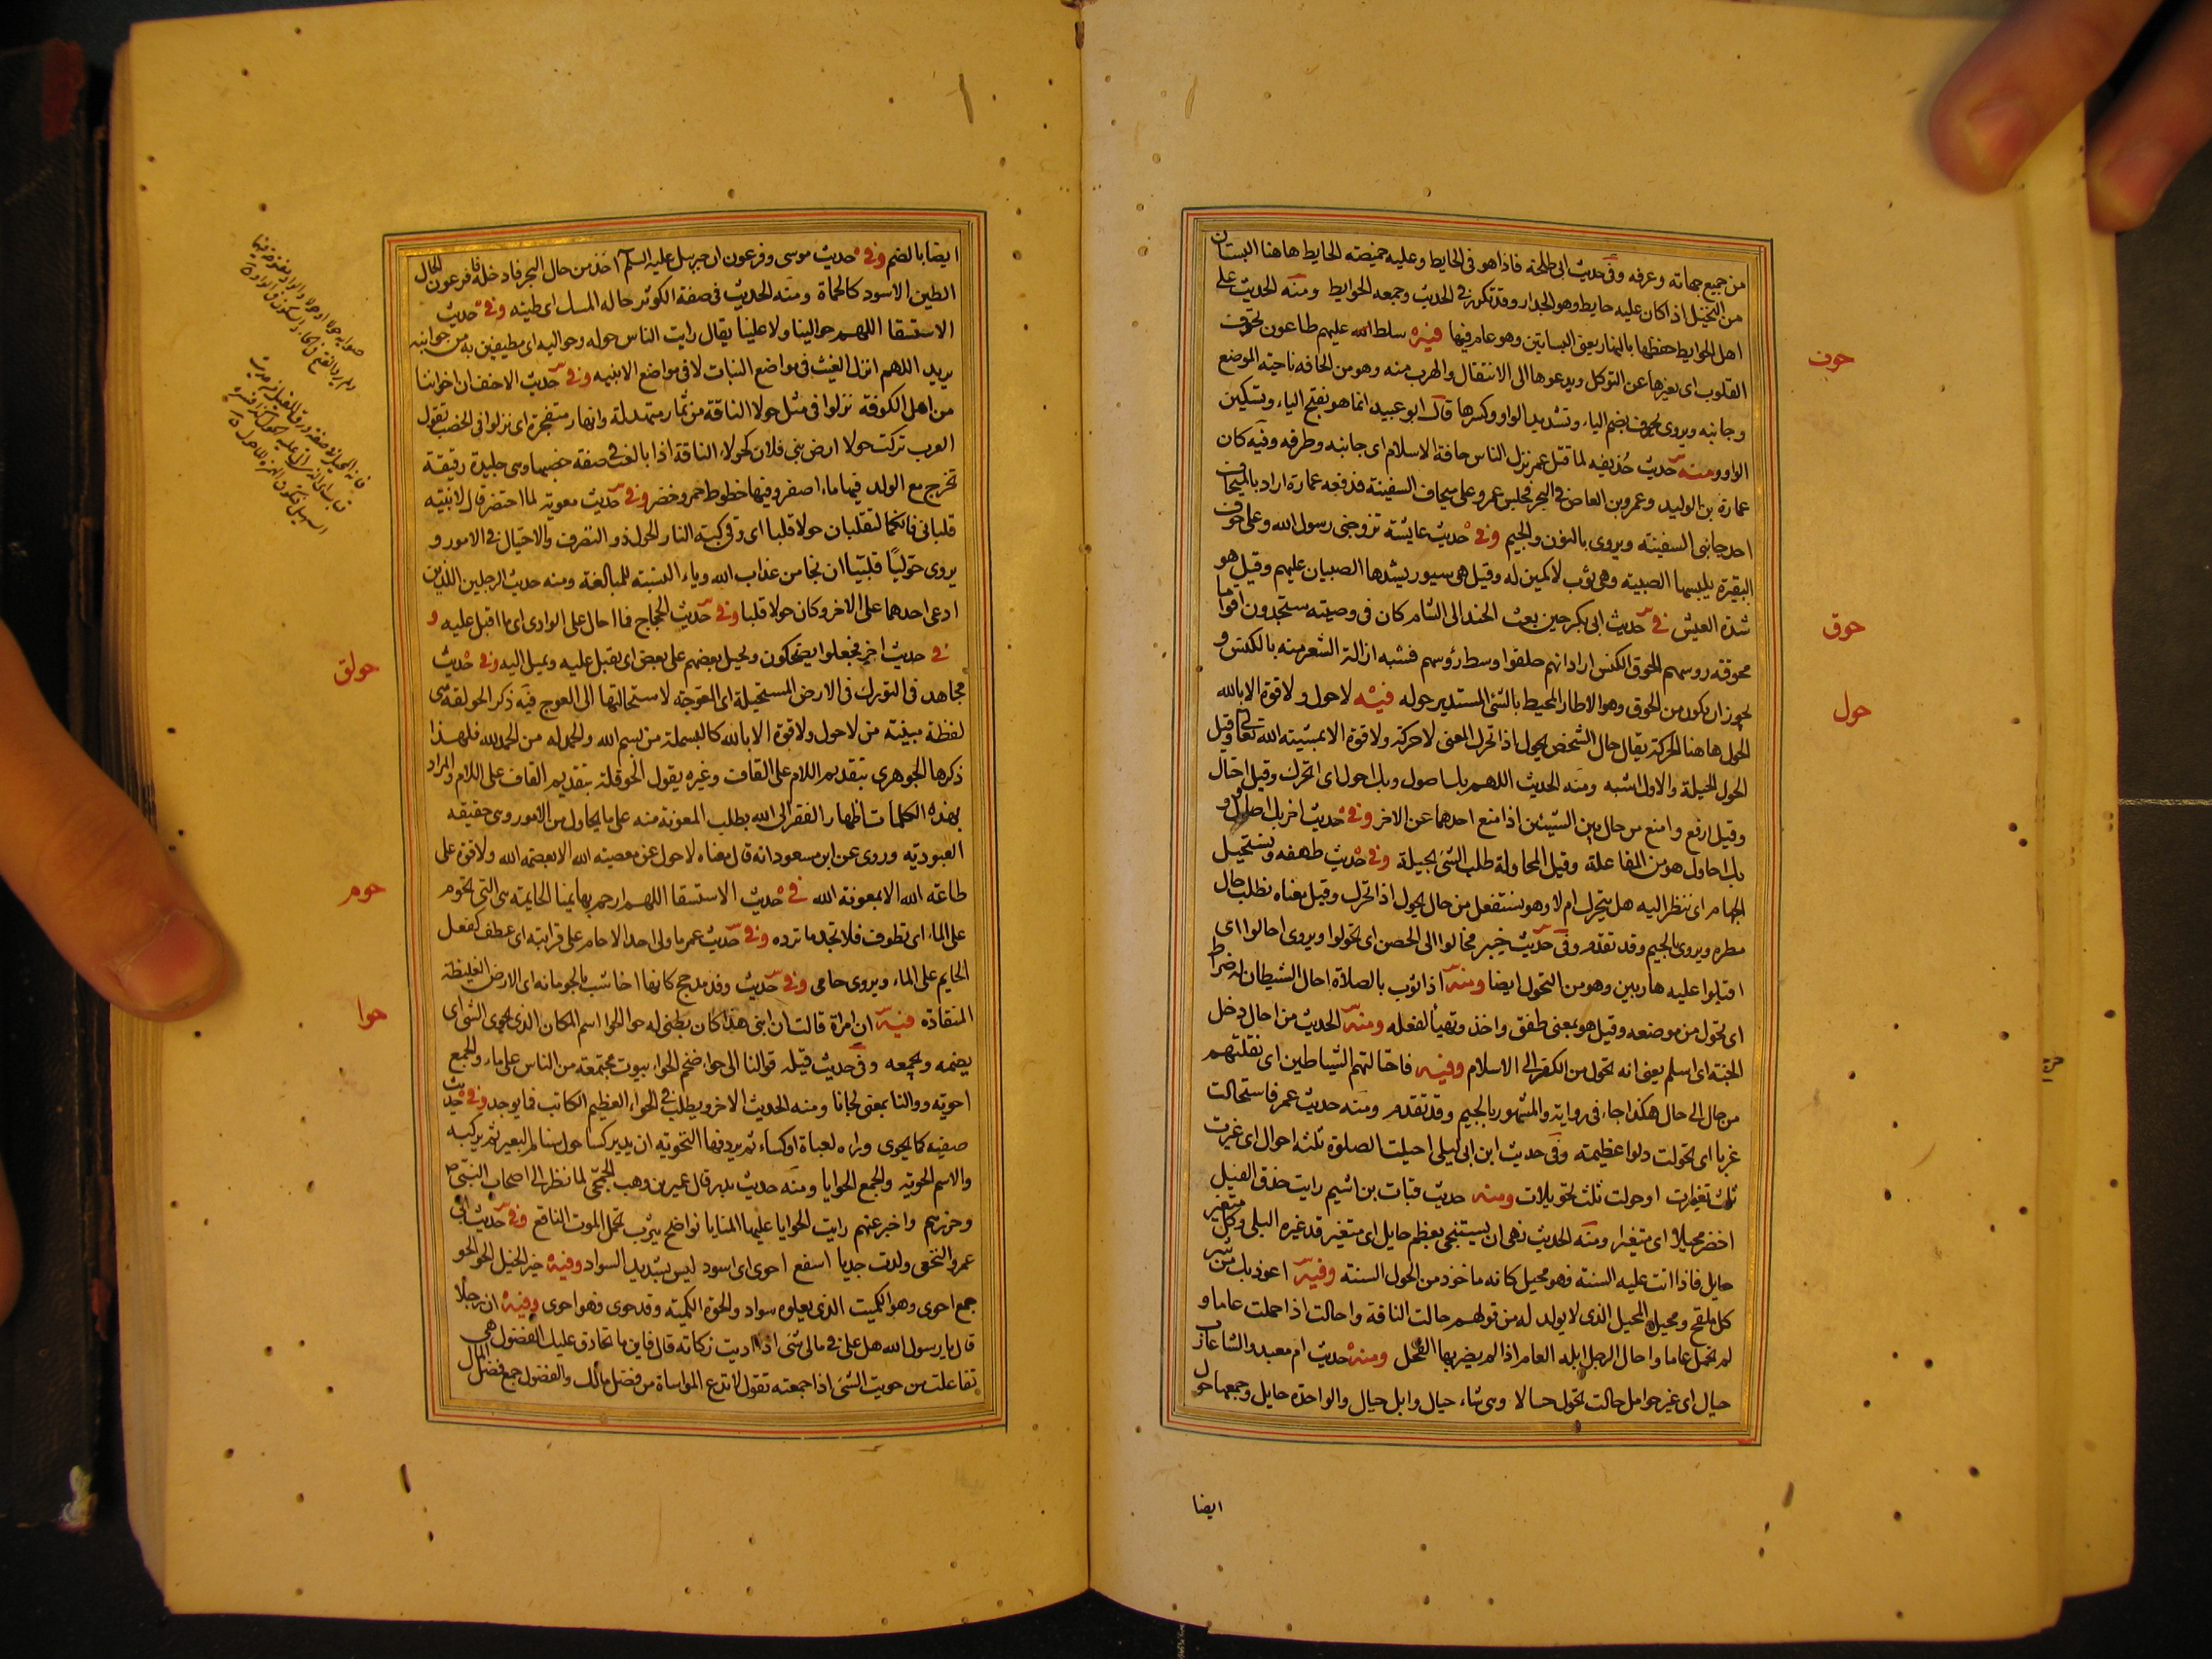 من جميع جهاته وعرفه وفى حديث ابى طلحة فاذا هو فى الحايط وعليه خميصته الحايط هاهنا البستان
من النخيل اذا كان عليه حايط وهو الجدار وقد تكرر فى الحديث وجمعه الحوايط ومنه الحديث على
اهل الحوايط حفظها بالنهار يعنى البساتين وهو عام فيها فيه سلط الله عليهم طاعون تحوف
حوف
القلوب اى يغيرها عن التوكل ويدعوها الى الانتقال والهرب منه وهو من الحافه ناحيته الموضع
وجانبه ويروى يحوف بضم الياء وتشديد الواو وكسرها قال ابو عبيد انما هو بفتح الياء وتسكين
الواو ومنه حديث حذيفه لما قتل عمر نزل الناس حافة الاسلام اى جانبه وطرفه وفيه كان
عمارة بن الوليد وعمرو بن العاص فى البحر فجلس عمرو على ميحاف السفينة فدفعه عمارة اراد بالميحاف
احد جانبى السفينه ويروى بالنون والجيم وفى حديث عايشه تزوجنى رسول الله وعلى حوف
البقيرة يلبسها الصبيه وهى ثوب لا كمين له وقيل هى سيور يشدها الصبيان عليهم وقيل هو
شدة العيش فى حديث ابى بكر حين بعث الجند الى الشام كان فى وصيته ستجدون اقواما
حوق
محوقه روسهم الحوق الكنس اراد انهم حلقوا وسط رؤسهم فشبه ازالة الشعر منه بالكنس و
يجوز ان يكون من الحوق وهو الاطار المحيط بالشئ المستدير حوله فيه لا حول ولا قوة الا بالله
حول
الحول هاهنا الحركة يقال حال الشخص يحول اذا تحرك المعنى لا حركة ولا قوة الا بمشيته الله تعالى وقيل
الحول الحيلة والاول اشبه ومنه الحديث اللهم بك اصول وبك احول اى اتحرك وقيل احتال
وقيل ارفع وامنع من حال بين الشيئين اذا منع احدهما عن الاخر وفى حديث اخر بك اصاول و
بك احاول هو من المفاعلة وقيل المحاولة طلب الشئ بحيلة وفى حديث طهفه ونستحيل
الجهام اى ننظر اليه هل يتحرك ام لا وهو نستفعل من حال يحول اذا تحرك وقيل معناه نطلب حال
مطره ويروى بالجيم وقد تقدم وفى حديث خيبر فحالوا الى الحصن اى تحولوا ويروى احالوا اى
اقبلوا عليه هاربين وهو من التحول ايضا ومنه اذا ثوب بالصلاة احال الشيطان له ضراط
اى تحول من موضعه وقيل هو بمعنى طفق واخذ وتهيأ لفعله ومنه الحديث من احال دخل
الجنة اى اسلم يعنى انه تحول من الكفر الى الاسلام وفيه فاحتالتهم الشياطين اى نقلتهم
من حال الى حال هكذا جاء فى رواية والمشهور بالجيم وقد تقدم ومنه حديث عمر فاستحالت
غربا اى تحولت دلوا عظيمة وفى حديث ابن ابى ليلى احيلت الصلوة ثلثه احوال اى غيرت
ثلث تغيرات او حولت ثلث تحويلات ومنه حديث قباث بن اشيم رايت خذق الفيل
اخضر محيلا اى متغيرا ومنه الحديث نهى ان يستنجى بعظم حايل اى متغير قد غيره البلى وكل متغير
حايل فاذا اتت عليه السنة فهو محيل كانه ماخوذ من الحول السنة وفيه اعوذ بك من شر
كل ملقح ومحيل المحيل الذى لا يولد له من قولهم حالت الناقة واحالت اذا حملت عاما و
لم تحمل عاما واحال الرجل ابله العام اذا لم يضربها الفحل ومنه حديث ام معبد والشاء عازب
حيال اى غير حوامل حالت تحول حيالا وهى شاء حيال وابل حيال والواحدة حايل وجمعها حول
ايضا
ايضا بالضم وفى حديث موسى وفرعون ان جبريل عليه السلم اخذ من حال البحر فادخله فا فرعون الحال
الطين الاسود كالحماة ومنه الحديث فى صفة الكوثر حاله المسك اى طينه وفى حديث
الاستسقا اللهم حوالينا ولا علينا يقال رايت الناس حوله وحواليه اى مطيفين به من جوانبه
يريد اللهم انزل الغيث فى مواضع النبات لا فى مواضع الابنيه وفى حديث الاحنف ان اخواننا
من اهل الكوفة نزلوا فى مثل حولا الناقة من ثمار متهدلة وانهار متفجرة اى نزلوا فى الخصب تقول
العرب تركت حولا ارض بنى فلان كحولاء الناقة اذا بالغت فى صفة خصبها وهى جليدة رقيقة
تخرج مع الولد فيها ماء اصفر وفيها خطوط حمر وخضر وفى حديث معويه لما احتضر قال لابنتيه
قلبانى فانكما لتقلبان حولا قلبا اى وقى كبة النار الحول ذو التصرف والاحتيال فى الامور و
يروى حوليا قلبيا ان نجا من عذاب الله وياء النسبة للمبالغة ومنه حديث الرجلين اللذين
ادعى احدهما على الاخر وكان حولا قلبا وفى حديث الحجاج فما احال على الوادى اى ما اقبل عليه و
فى حديث اخر فجعلوا يضحكون ويحيل بعضهم على بعض اى يقبل عليه ويميل اليه وفى حديث
حولق
مجاهد فى التورك فى الارض المستحيلة اى المعوجة لاستحالتها الى العوج فيه ذكر الحولقه هى
لفظة مبنية من لا حول ولا قوة الا بالله كالبسملة من بسم الله والحمدله من الحمد لله فلهذا
ذكرها الجوهرى بتقديم اللام على القاف وغيره يقول الحوقلة بتقديم القاف على اللام والمراد
بهذه الكلمات اظهار الفقر الى الله بطلب المعونة منه على ما يحاول من الامور وهى حقيقه
العبوديه وروى عن ابن مسعود انه قال معناه لا حول عن معصيته الله الا بعصمة الله ولا قوة على
طاعة الله الا بمعونة الله فى حديث الاستسقا اللهم ارحم بهايمنا الحايمة هى التى تحوم
حوم
على الماء اى تطوف فلا تجد ما ترده وفى حديث عمر ما ولى احد الا حام على قرابته اى عطف كفعل
الحايم على الماء ويروى حامى وفى حديث وفد مذحج كانها اخاشب بالحومانه اى الارض الغليظة
المنقادة فيه ان امراة قالت ان ابنى هذا كان بطنى له حوا الحوا اسم المكان الذى يحوى الشئ اى
حوا
يضمه ويجمعه وفى حديث قيله فوالنا الى حواء ضخم الحواء بيوت مجتمعة من الناس على ماء والجمع
احويه ووالنا بمعنى لجانا ومنه الحديث الاخر ويطلب فى الحواء العظيم الكاتب فما يوجد وفى حديث
صفيه كان يحوى وراءه لعباءة او كساء ثم يردفها التحويه ان يدير كساء حول سنام البعير ثم يركبه
والاسم الحويه والجمع الحوايا ومنه حديث بدر قال عمير بن وهب الجمحى لما نظر الى اصحاب النبى ص
وحزرهم واخبر عنهم رايت الحوايا عليها المنايا نواضح يثرب تحمل الموت الناقع وفى حديث ابى
عمرو النخعى ولدت جديا اسفع احوى اى اسود ليس بشديد السواد وفيه خير الخيل الحو الحو
جمع احوى وهو الكميت الذى يعلوه سواد والحوة الكمته وقد حوى فهو احوى وفيه ان رجلا
قال يا رسول الله هل على فى مالى شئ اذا اديت زكاته قال فاين ما تحاوت عليك الفضول هى
تفاعلت من حويت الشئ اذا جمعته تقول لا تدع المواساة من فضل مالك والفضول جمع فضل المال